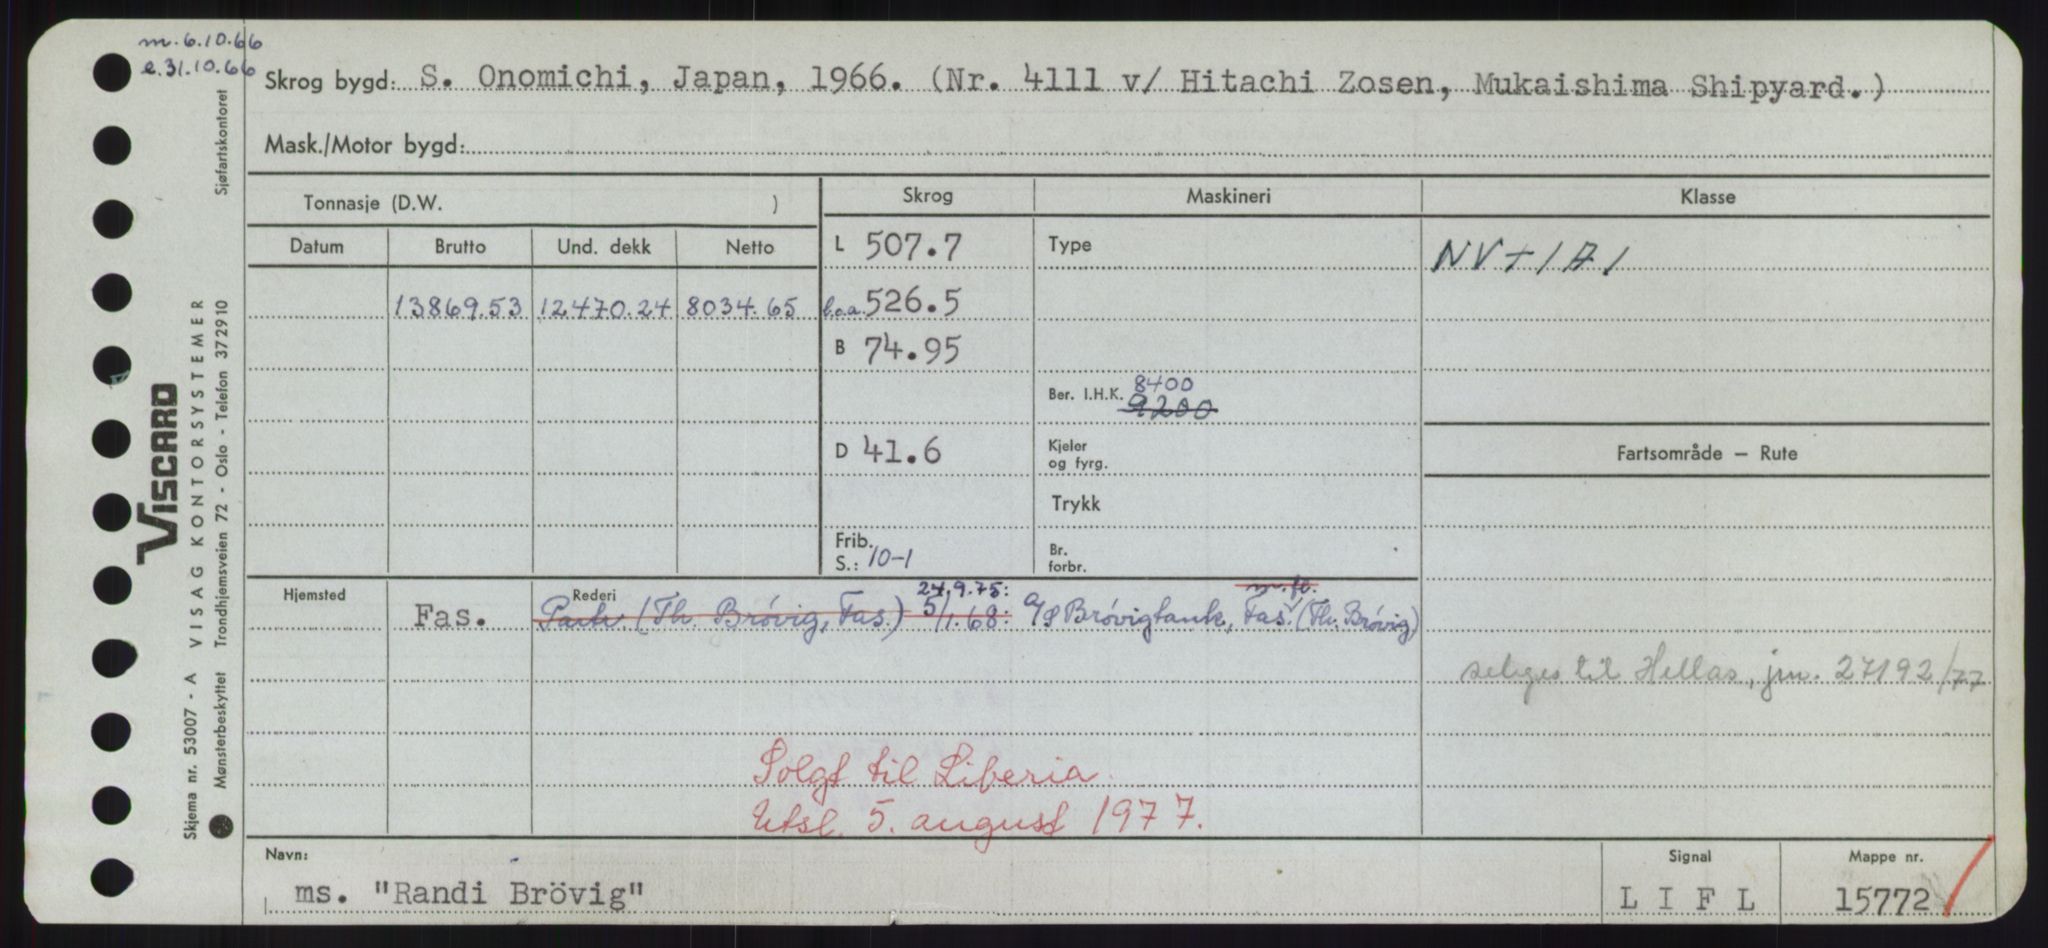 m. 6.10.66
e. 31.10.66
Skrog bygd: S. Onomichi, Japan, 1966. (Nr. 4111 v/ Hitachi Zosen, Mukaishima Shipyard.)
Mask./Motor bygd:
Tonnasje (D.W. )
Skrog Maskineri Klasse
Datum Brutto Und. dekk Netto
L 507.7 Type NV + 1 A 1
13869.53 12470.24 8034.65 l.o.a. 526.5
B 74.95
Ber. I.H.K. 8400
9200
D 41.6 Kjeler og fyrg. Fartsområde – Rute
Trykk
Frib. S.: 10-1 Br. forbr.
Hjemsted Rederi 24.9.75: m.fl.
Fas. Partr. (Th. Brövig, Fas.) 5/1.68: A/S Brövigtank, Fas. (Th. Brövig)
selges til Hellas, jnr. 27192/77
Solgt til Liberia.
Utsl. 5. august 1977.
Navn: Signal Mappe nr.
ms. "Randi Brövig" L I F L 15772
VISCARD
VISAG KONTORSYSTEMER
Skjema nr. 53007 - A
Mønsterbeskyttet Trondhjemsveien 72 - Oslo - Telefon 372910 Sjøfartskontoret